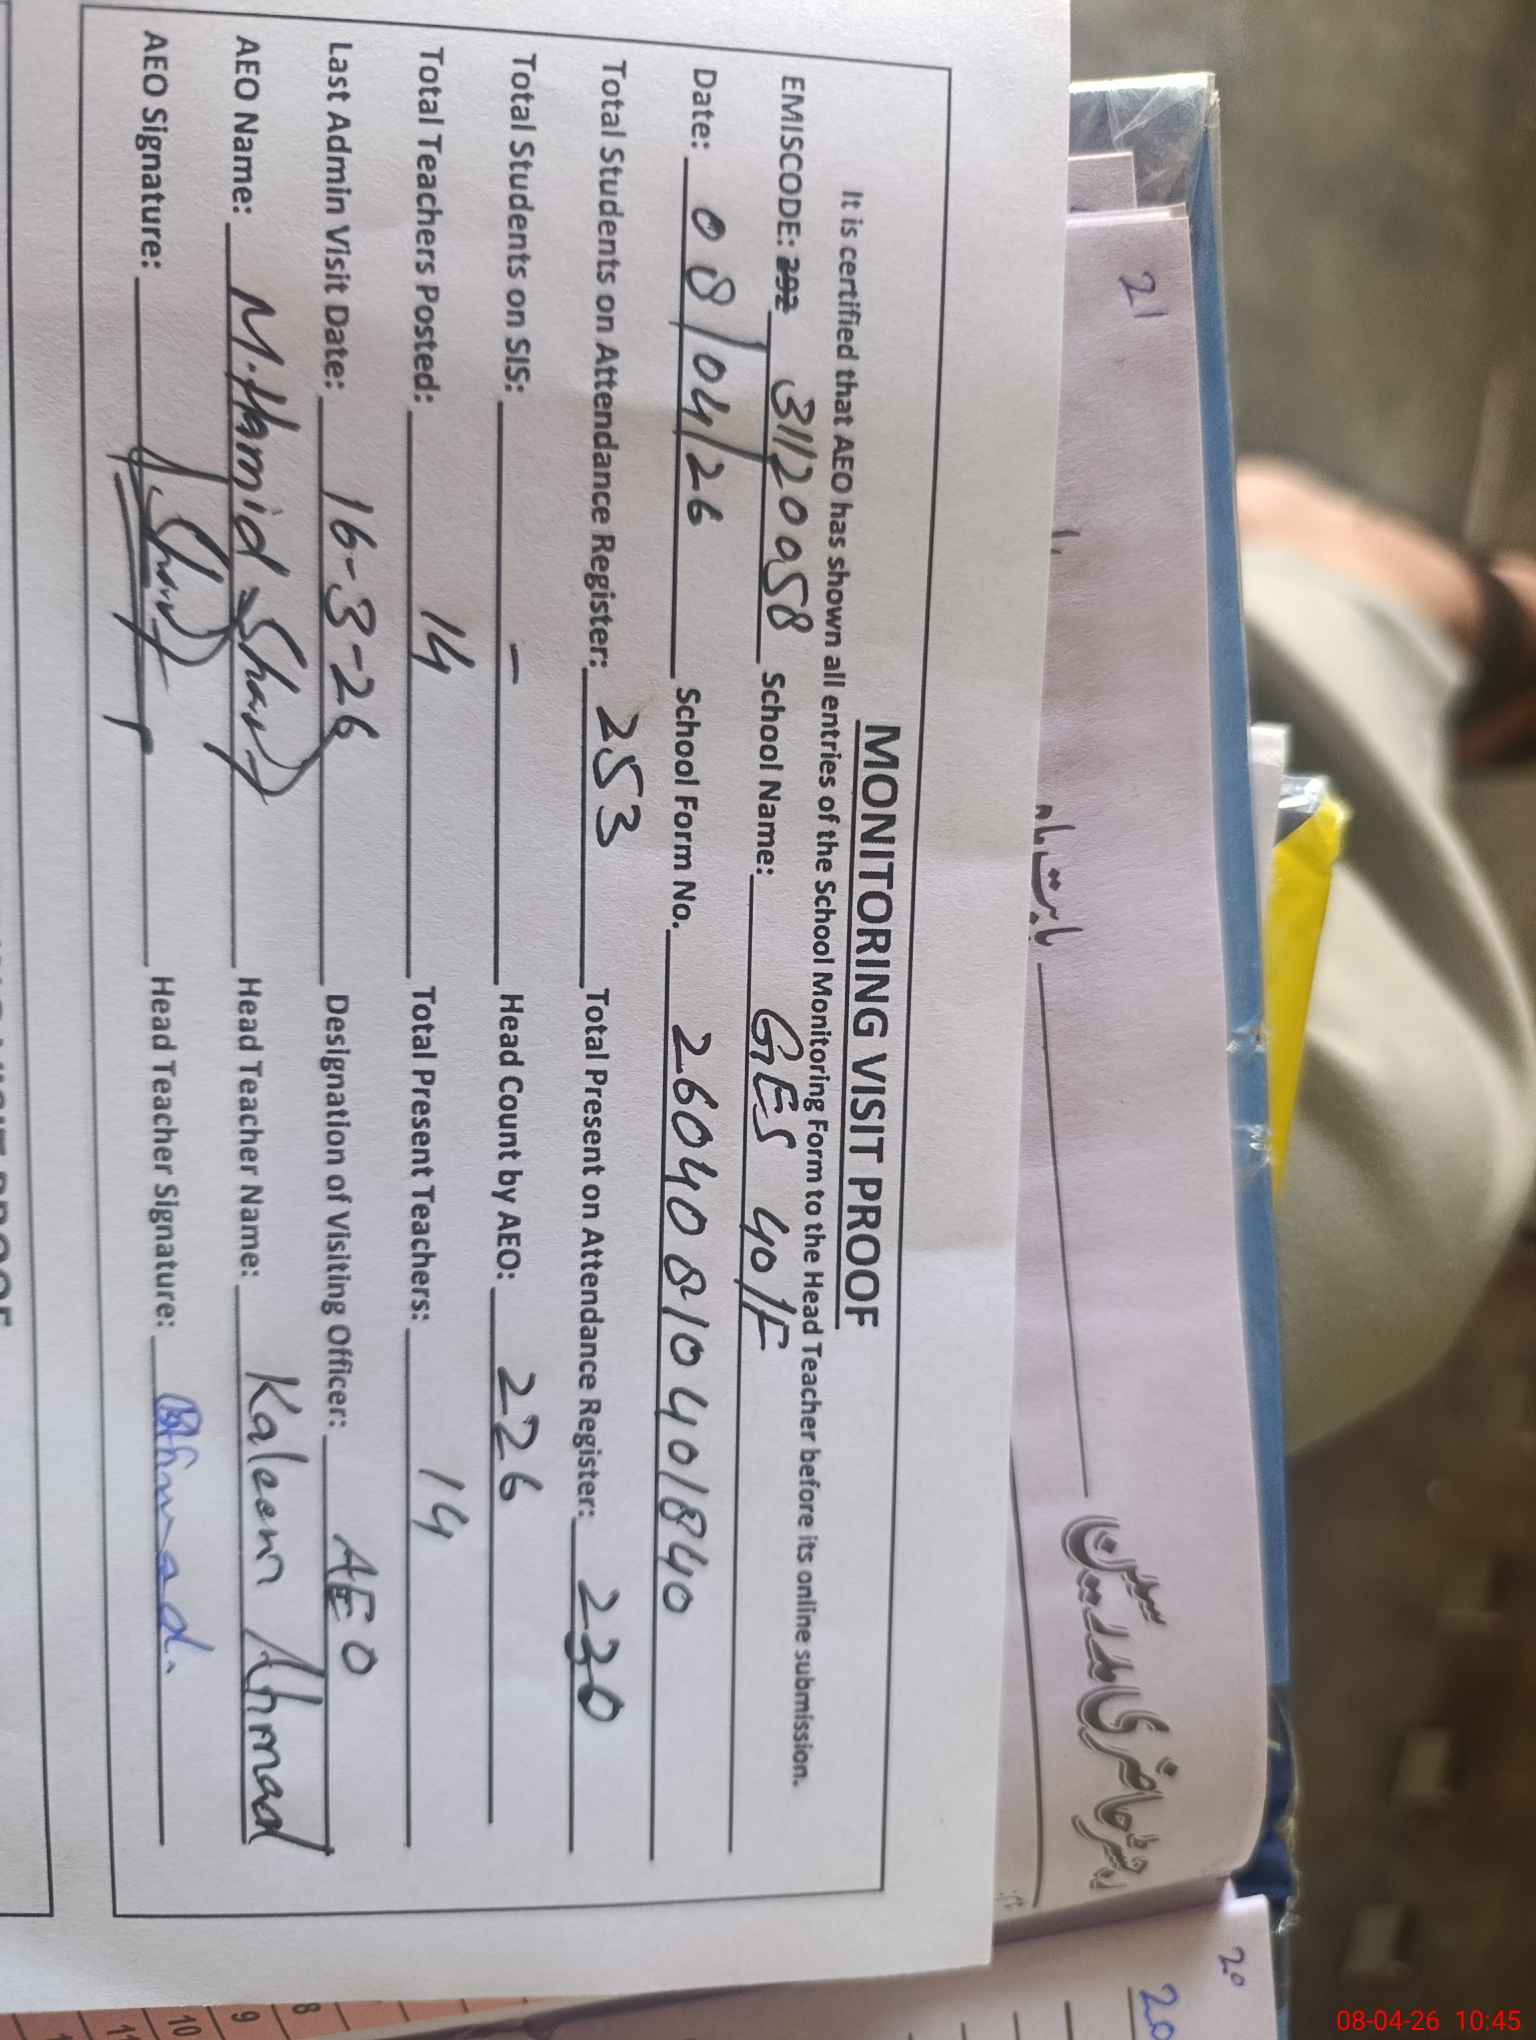 21
بابت ماہ
رجسٹر حاضری مدرسین
MONITORING VISIT PROOF
It is certified that AEO has shown all entries of the School Monitoring Form to the Head Teacher before its online submission.
EMISCODE: 292 31120058 School Name: GES 40/F
Date: 08/04/26 School Form No. 2604081040401840
Total Students on Attendance Register: 253 Total Present on Attendance Register: 230
Total Students on SIS: - Head Count by AEO: 226
Total Teachers Posted: 14 Total Present Teachers: 14
Last Admin Visit Date: 16-3-26 Designation of Visiting Officer: AEO
AEO Name: M. Hamid Sharif Head Teacher Name: Kaleem Ahmad
AEO Signature: Head Teacher Signature: Ahmad.
20
20
8
9
10
11
08-04-26 10:45